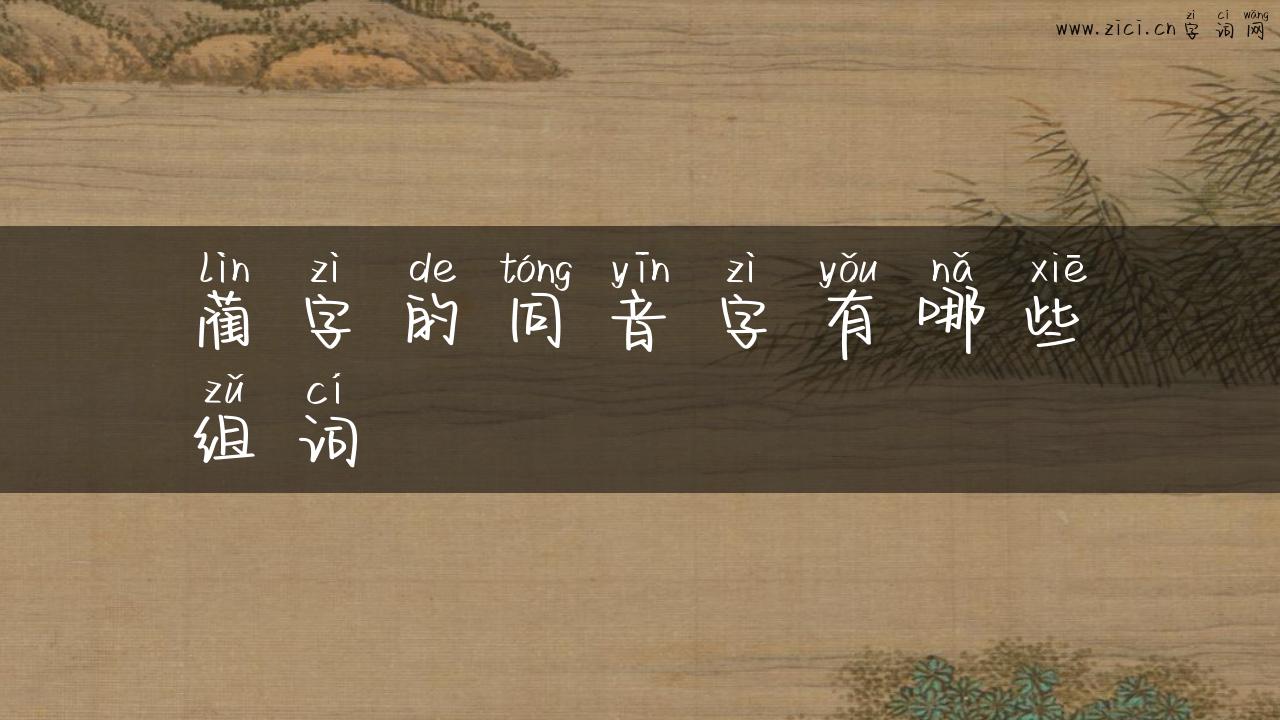 zì cí wǎng
www.zici.cn 字 词 网
lìn zì de tóng yīn zì yǒu nǎ xiē
蔺 字 的 同 音 字 有 哪 些
zǔ cí
组 词